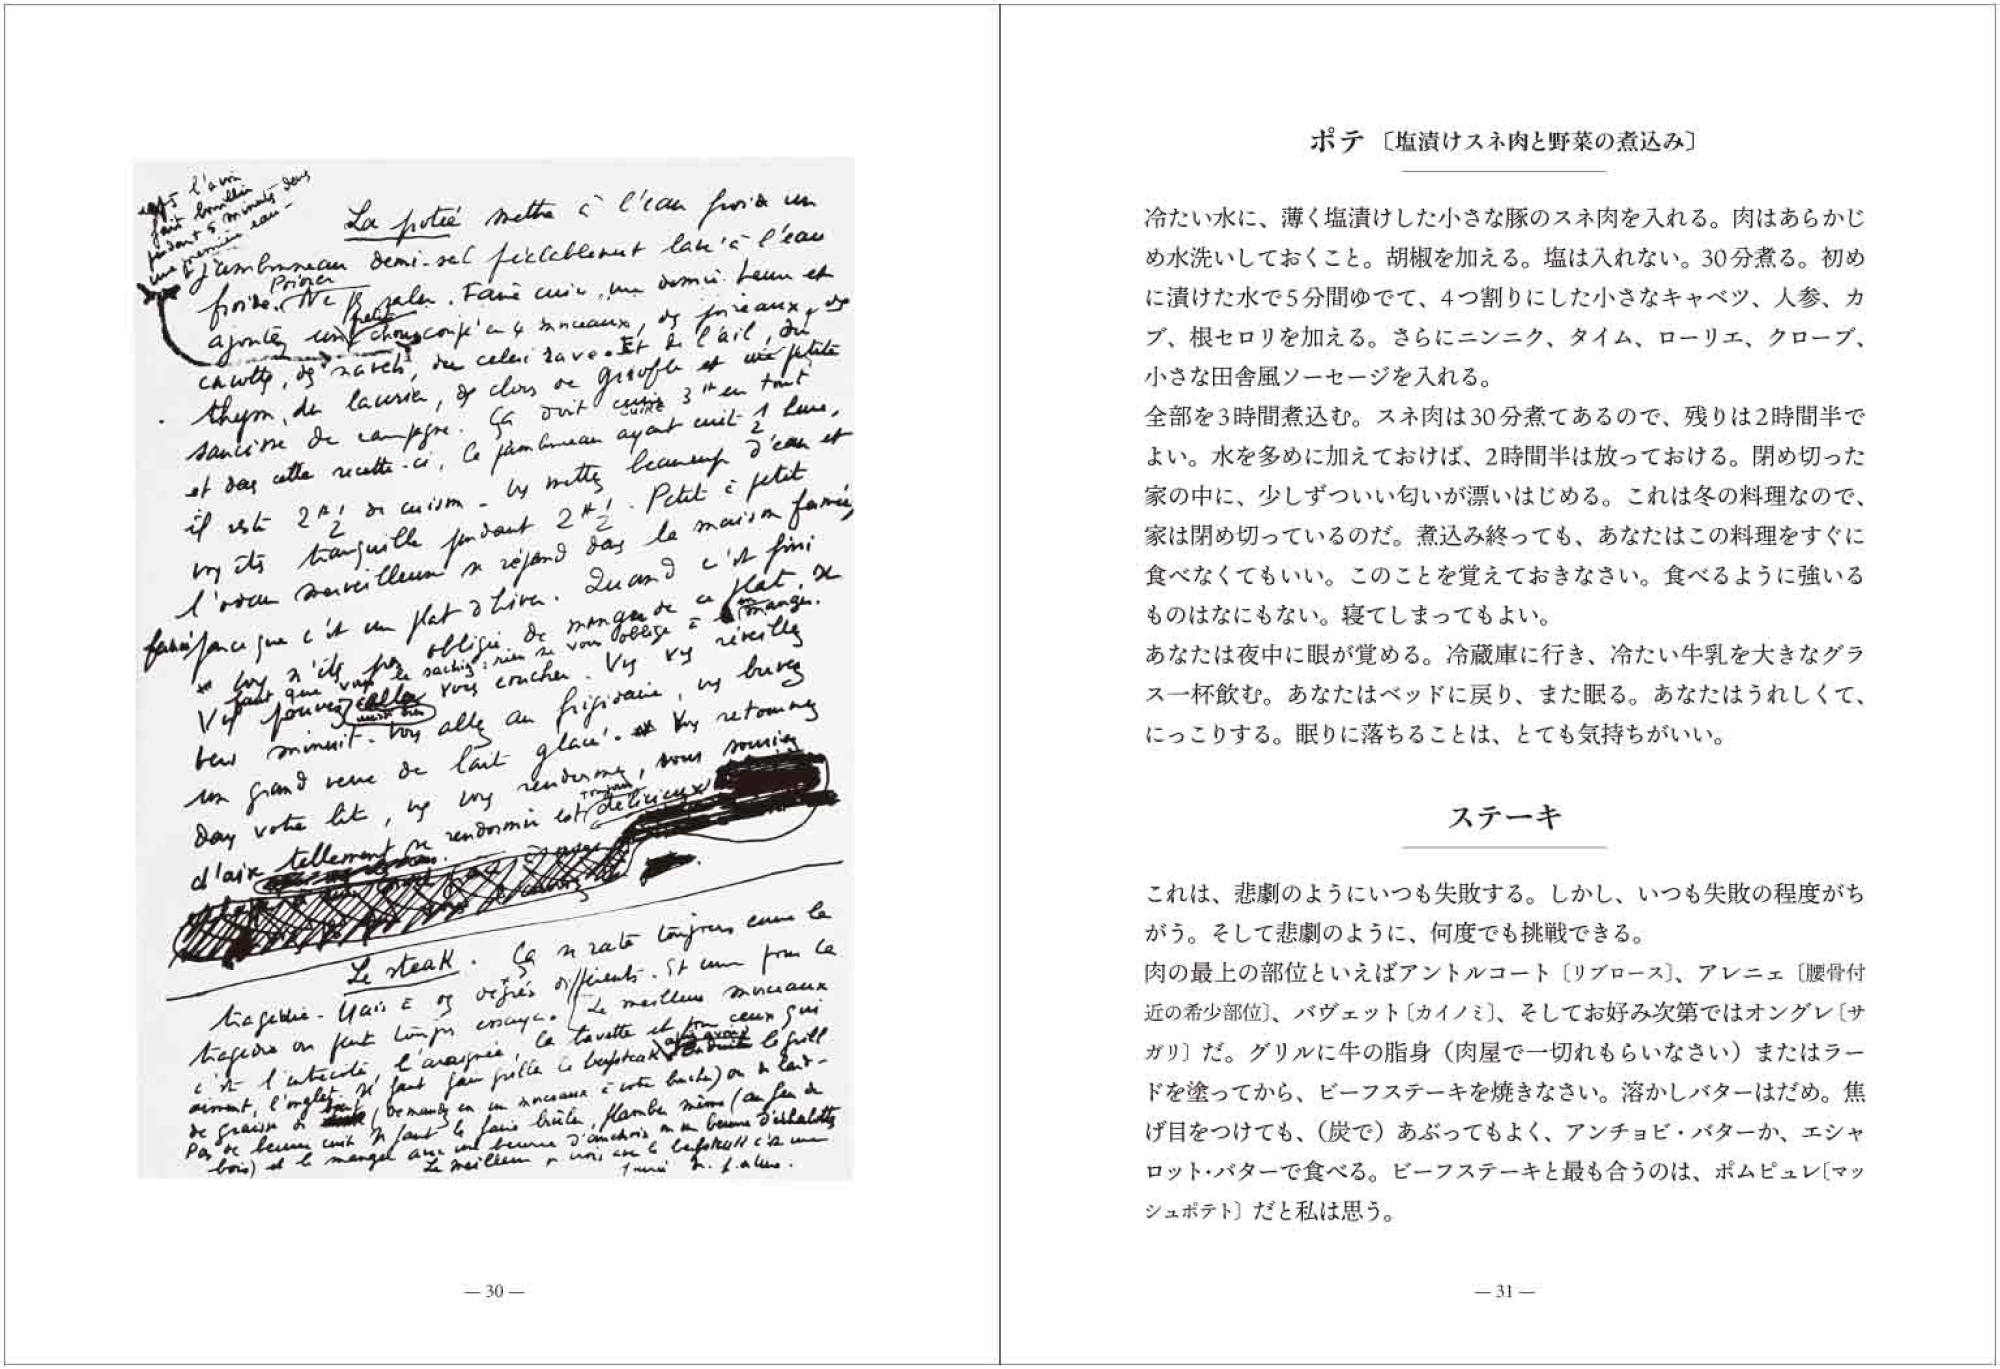 La potée mettre à l'eau froide un
jambonneau demi-sel préalablement lavé à l'eau
froide. Poivrer Ne pas saler. Faire cuire une demie heure et
ajoutez un petit chou coupé en 4 morceaux, des poireaux, des
carottes, des navets, du céleri rave. Et de l'ail, du
thym, du laurier, des clous de girofle et une petite
saucisse de campagne. Ça doit cuire 3 H en tout
et dans cette recette-ci, le jambonneau ayant cuit 1/2 heure,
il reste 2 H 1/2 de cuisson - Vs mettez beaucoup d'eau et
vs êtes tranquille pendant 2 H 1/2. Petit à petit
l'odeur merveilleuse se répand dans la maison fermée,
fermée parce que c'est un plat d'hiver. Quand c'est fini
vs n'êtes pas obligée de manger de ce plat.
faut que vous le sachiez: rien ne vous oblige à en manger.
Vs pouvez vous coucher. Vs vs réveillez
vers minuit. Vous allez au frigidaire, vs buvez
un grand verre de lait glacé. Vs retournez
dans votre lit, vs vous rendormez, vous souriez
d'aise tellement se rendormir est toujours délicieux
Le steak. Ça se rate toujours comme la
tragédie. Mais à des degrés différents. Et comme pour la
tragédie on peut toujours essayer. Le meilleur morceaux
c'est l'entrecôte, l'araignée, la bavette et pour ceux qui
aiment, l'onglet. Il faut faire griller le beefsteak le grill
de graisse de (demandez en un morceaux à votre boucher) ou de lard-
Pas de beurre cuit Il faut le faire brûler, flamber même (au feu de
bois) et le manger avec un beurre d'anchois ou un beurre d'échalottes
Le meilleur je crois avec le beefsteak c'est une
— 30 —
ポテ〔塩漬けスネ肉と野菜の煮込み〕
冷たい水に、薄く塩漬けした小さな豚のスネ肉を入れる。肉はあらかじ
め水洗いしておくこと。胡椒を加える。塩は入れない。30分煮る。初め
に漬けた水で5分間ゆでて、4つ割りにした小さなキャベツ、人参、カ
ブ、根セロリを加える。さらにニンニク、タイム、ローリエ、クローブ、
小さな田舎風ソーセージを入れる。
全部を3時間煮込む。スネ肉は30分煮てあるので、残りは2時間半で
よい。水を多めに加えておけば、2時間半は放っておける。閉め切った
家の中に、少しずついい匂いが漂いはじめる。これは冬の料理なので、
家は閉め切っているのだ。煮込み終っても、あなたはこの料理をすぐに
食べなくてもいい。このことを覚えておきなさい。食べるように強いる
ものはなにもない。寝てしまってもよい。
あなたは夜中に眼が覚める。冷蔵庫に行き、冷たい牛乳を大きなグラ
ス一杯飲む。あなたはベッドに戻り、また眠る。あなたはうれしくて、
にっこりする。眠りに落ちることは、とても気持ちがいい。
ステーキ
これは、悲劇のようにいつも失敗する。しかし、いつも失敗の程度がち
がう。そして悲劇のように、何度でも挑戦できる。
肉の最上の部位といえばアントルコート〔リブロース〕、アレニェ〔腰骨付
近の希少部位〕、バヴェット〔カイノミ〕、そしてお好み次第ではオングレ〔サ
ガリ〕だ。グリルに牛の脂身（肉屋で一切れもらいなさい）またはラー
ドを塗ってから、ビーフステーキを焼きなさい。溶かしバターはだめ。焦
げ目をつけても、（炭で）あぶってもよく、アンチョビ・バターか、エシャ
ロット・バターで食べる。ビーフステーキと最も合うのは、ポムピュレ〔マッ
シュポテト〕だと私は思う。
— 31 —